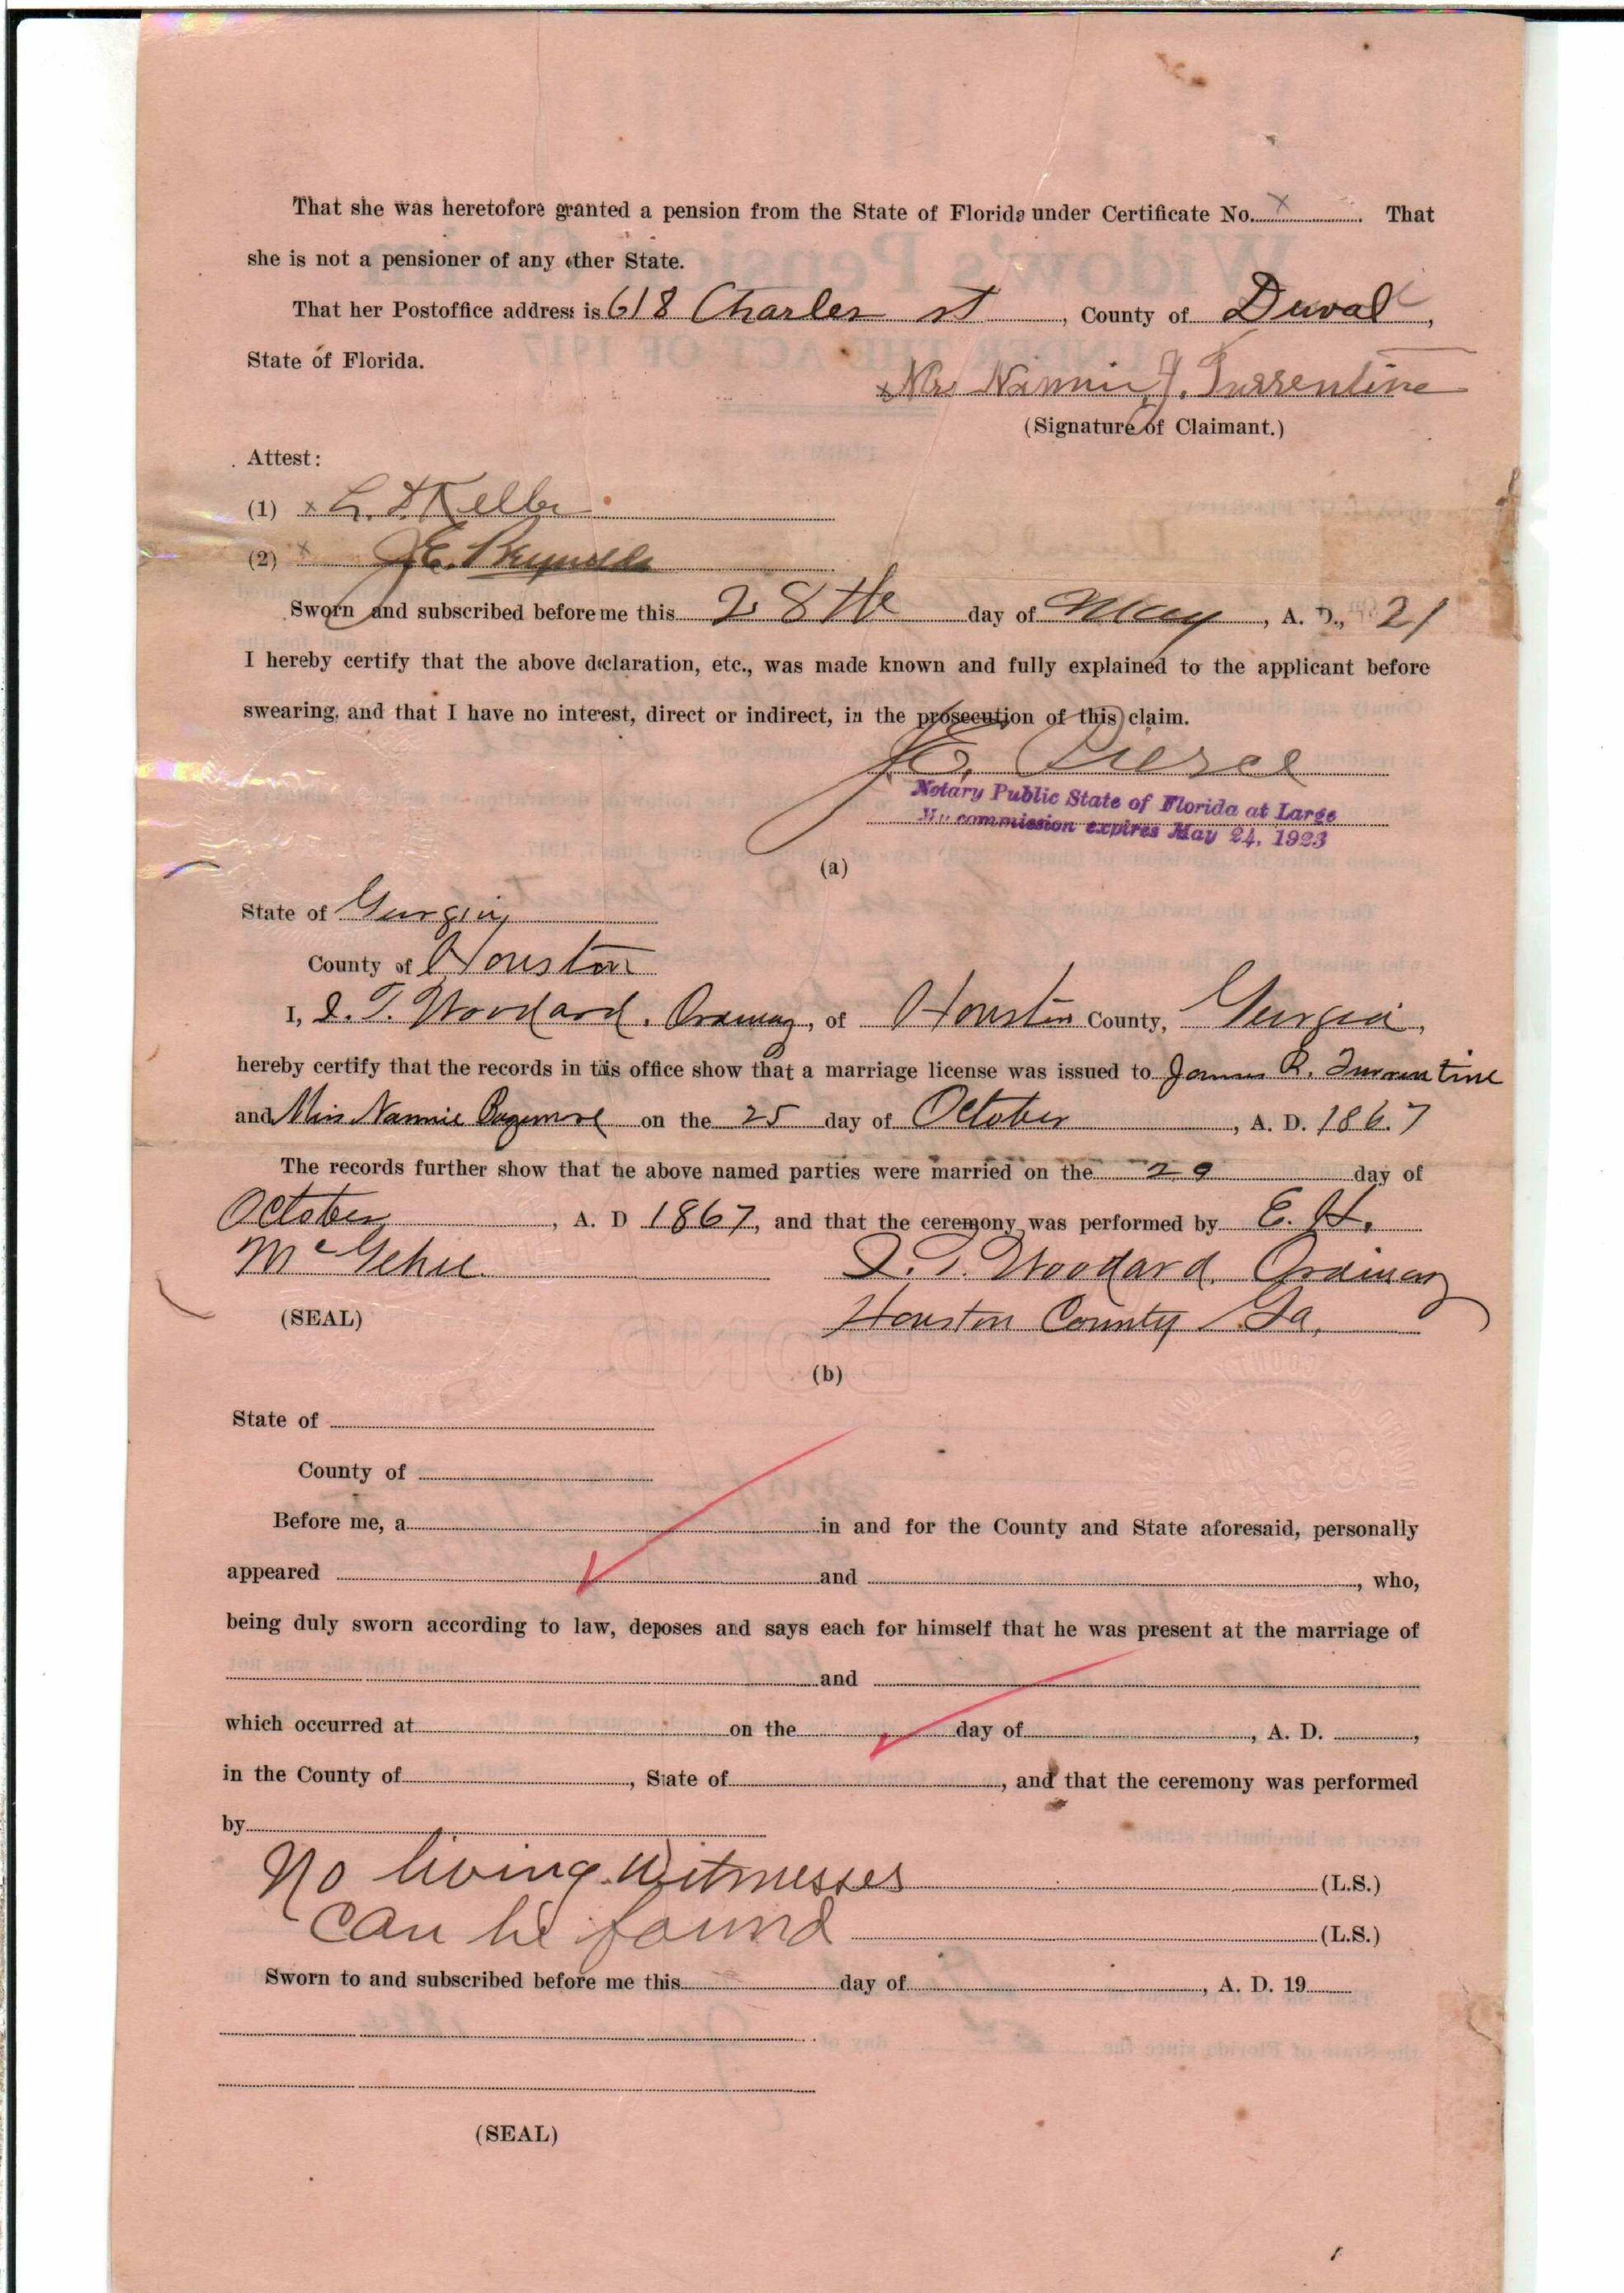 That she was heretofore granted a pension from the State of Florida under Certificate No. x . That
she is not a pensioner of any other State.
That her Postoffice address is 618 Charles st , County of Duval ,
State of Florida.
x Mrs Nannie J. Turrentine
(Signature of Claimant.)
Attest:
(1) x
(2) x J.E. Reynolds
Sworn and subscribed before me this 28th day of May , A. D., 21
I hereby certify that the above declaration, etc., was made known and fully explained to the applicant before
swearing, and that I have no interest, direct or indirect, in the prosecution of this claim.
Pierce
Notary Public State of Florida at Large
My commission expires May 24, 1923
(a)
State of Georgia
County of Houston
I, I. T. Woodard, Ordinary, of Houston County, Georgia,
hereby certify that the records in this office show that a marriage license was issued to James R. Turrentine
and Miss Nannie on the 25 day of October , A. D. 1867
The records further show that he above named parties were married on the 29 day of
October , A. D 1867, and that the ceremony was performed by E. H.
McGehee
I. T. Woodard, Ordinary
(SEAL)
Houston County Ga,
(b)
State of
County of
Before me, a in and for the County and State aforesaid, personally
appeared and , who,
being duly sworn according to law, deposes and says each for himself that he was present at the marriage of
and
which occurred at on the day of , A. D. ,
in the County of , State of , and that the ceremony was performed
by
No living Witnesses (L.S.)
can be found (L.S.)
Sworn to and subscribed before me this day of , A. D. 19
(SEAL)